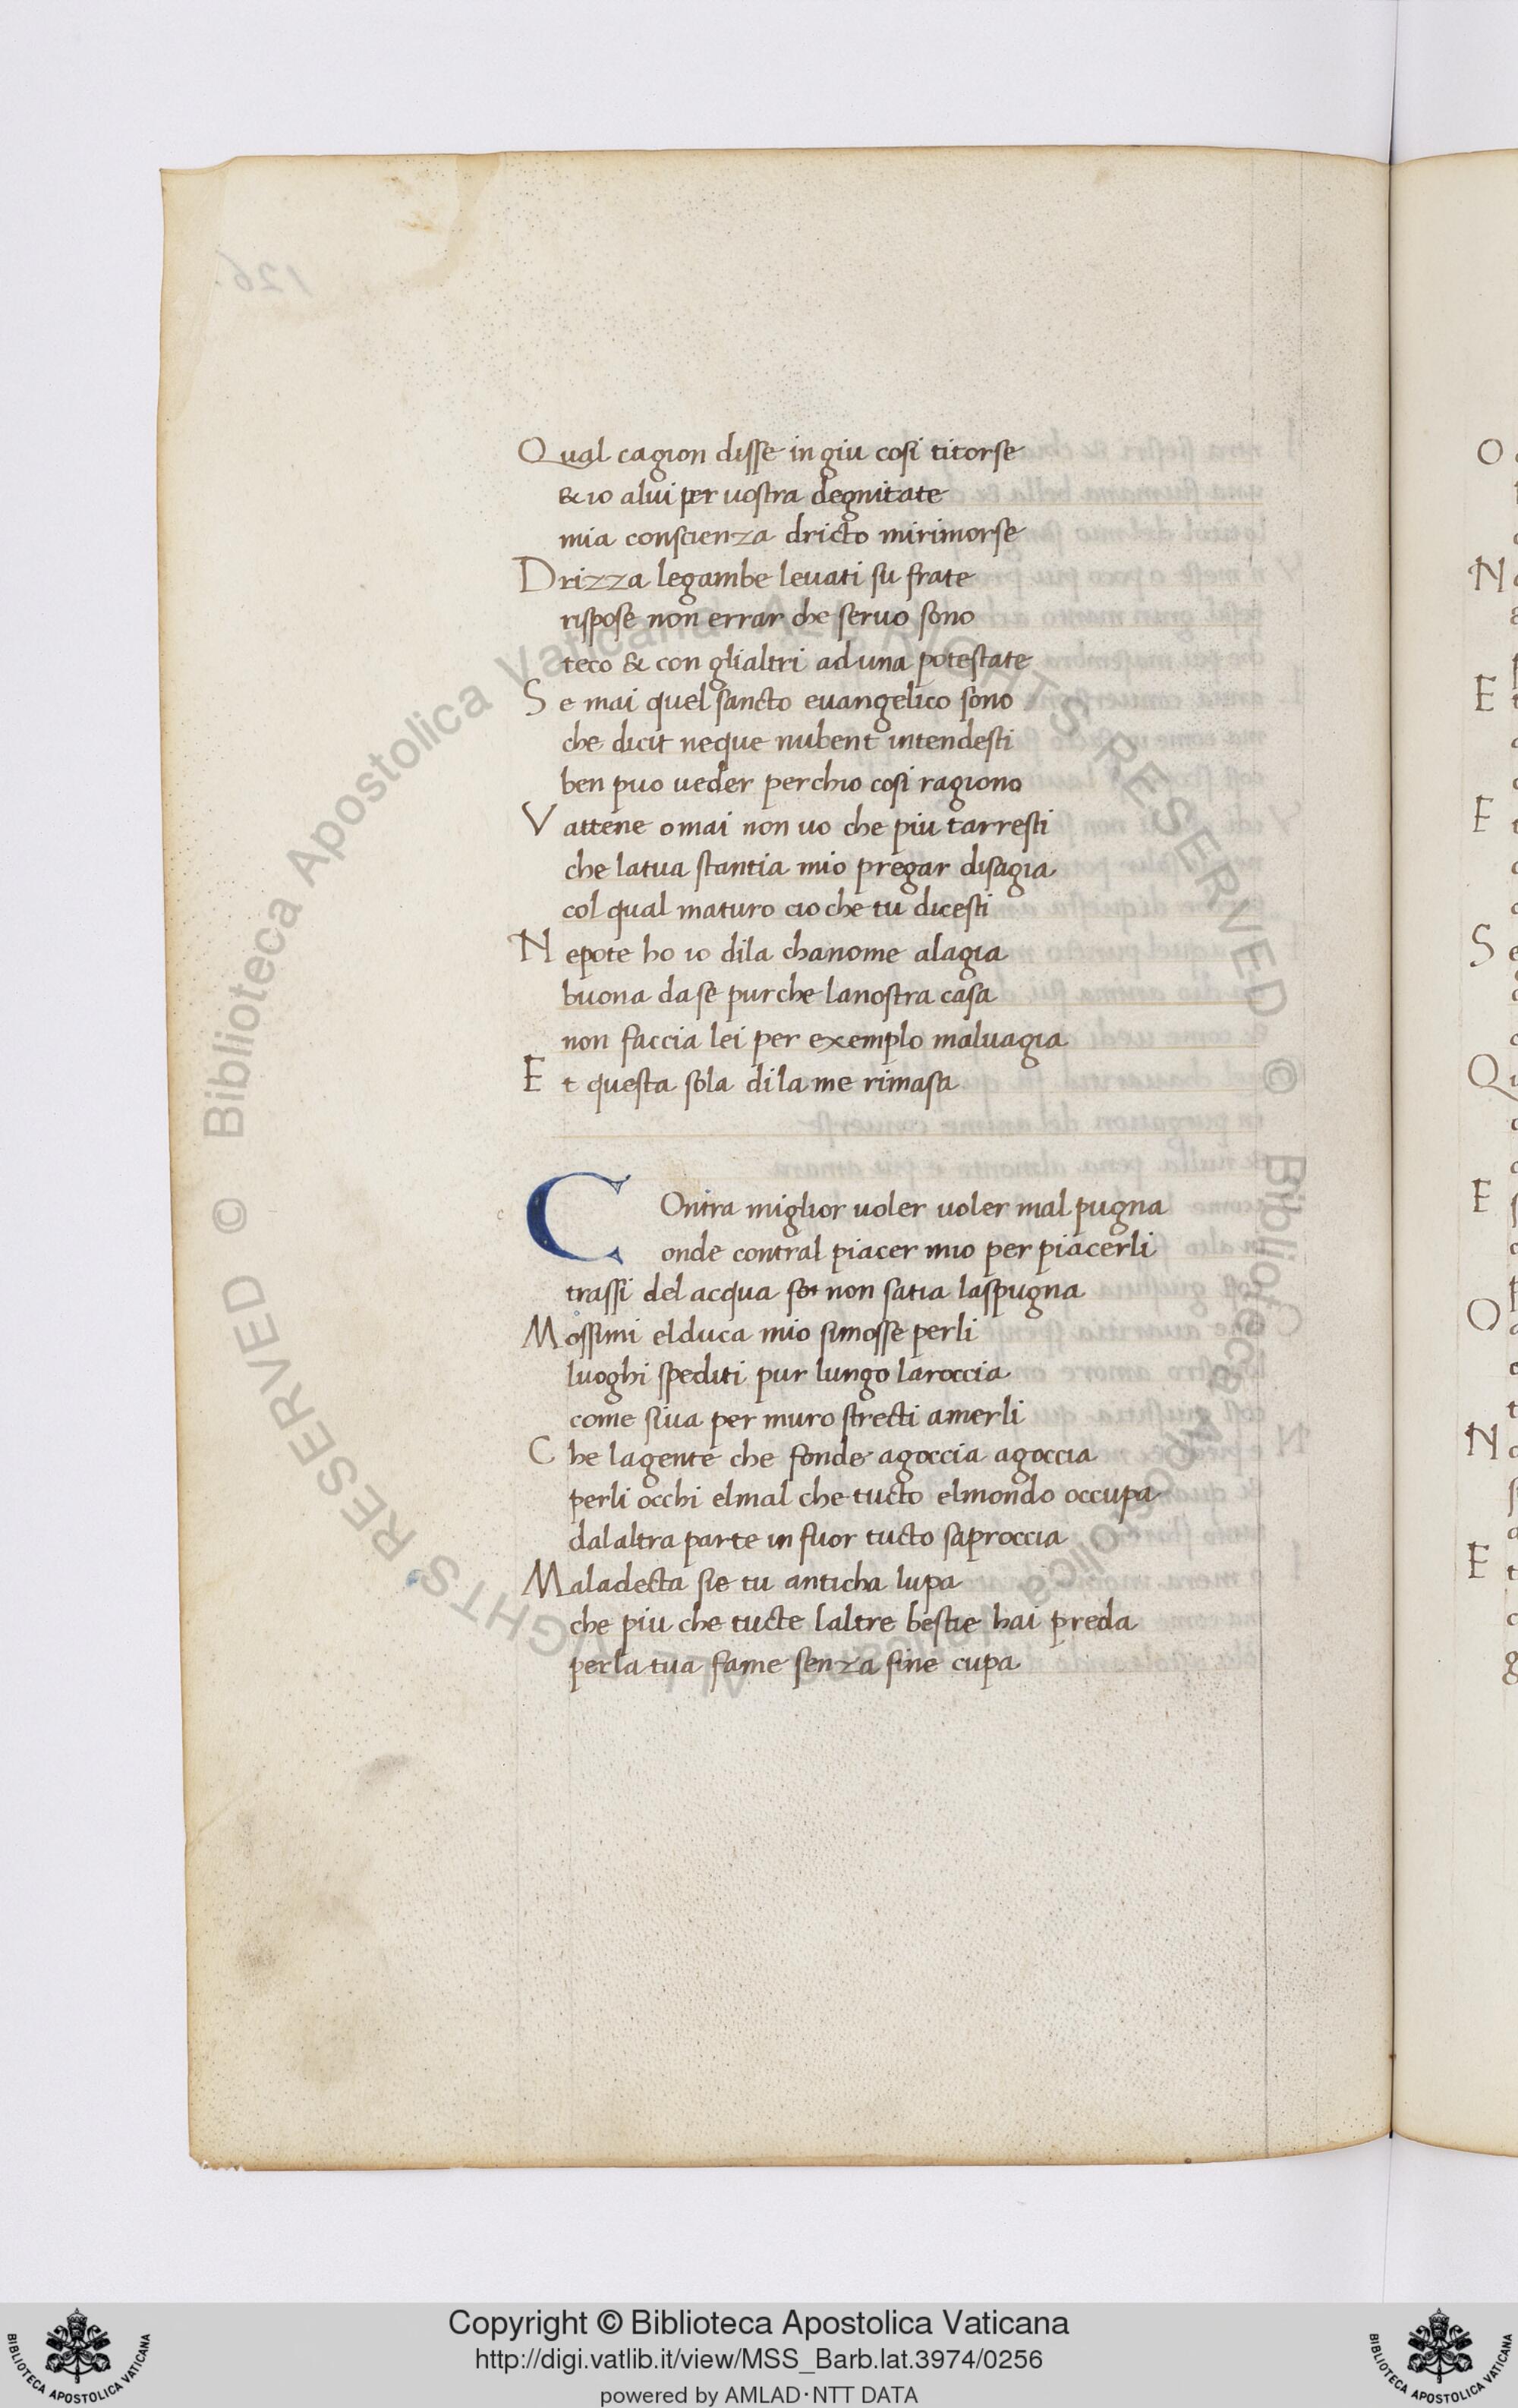 Qual cagion disse in giu cosi titorse
& io alui per uostra degnitate
mia conscienza dricto mirimorse
Drizza legambe leuati su frate
rispose non errar che seruo sono
teco & con glialtri aduna potestate
Se mai quel sancto euangelico sono
che dicit neque nubent intendesti
ben puo ueder perchio cosi ragiono
Vattene omai non uo che piu tarresti
che latua stantia mio pregar disagia
col qual maturo cio che tu dicesti
Nepote ho io dila chanome alagia
buona dase purche lanostra casa
non faccia lei per exemplo maluagia
Et questa sola dila me rimasa
COntra miglior uoler uoler mal pugna
onde contral piacer mio per piacerli
trassi del acqua non satia laspugna
Mossimi elduca mio simosse perli
luoghi spediti pur lungo laroccia
come siua per muro strecti amerli
Che lagente che fonde agoccia agoccia
perli occhi elmal che tucto elmondo occupa
dalaltra parte in fuor tucto saproccia
Maladecta sie tu anticha lupa
che piu che tucte laltre bestie hai preda
perla tua fame senza fine cupa
126.
O
N
E
E
S
Q
E
O
N
E
© Biblioteca Apostolica Vaticana ALL RIGHTS RESERVED
© Biblioteca Apostolica Vaticana ALL RIGHTS RESERVED
Copyright © Biblioteca Apostolica Vaticana
http://digi.vatlib.it/view/MSS_Barb.lat.3974/0256
powered by AMLAD·NTT DATA
BIBLIOTECA APOSTOLICA VATICANA
BIBLIOTECA APOSTOLICA VATICANA